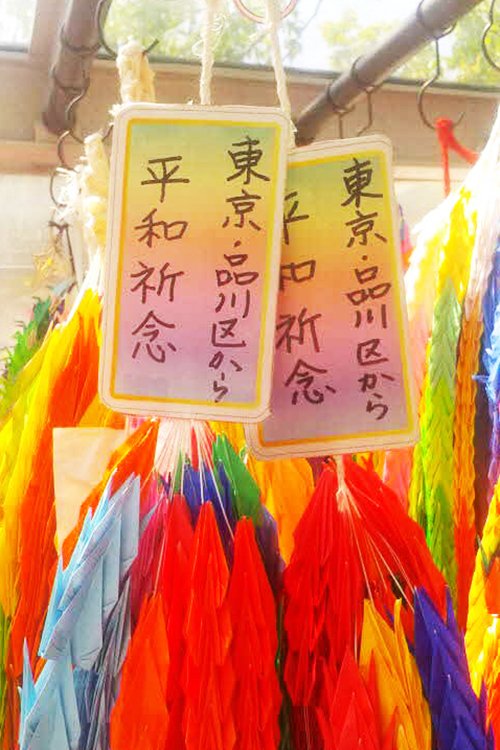 東京・品川区から
平和祈念
東京・品川区から
平和祈念